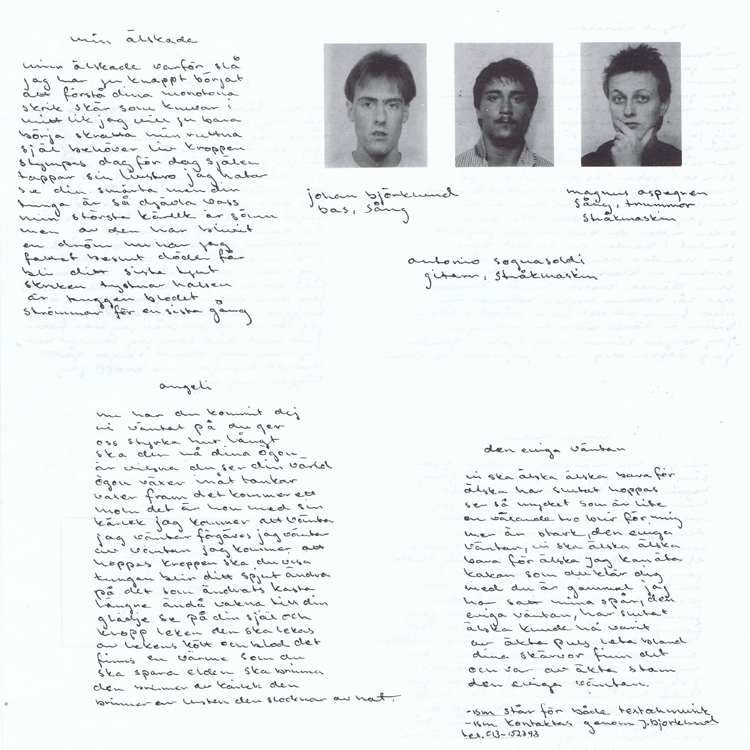 min älskade
minn älskade varför slå
jag har ju knappt börjat
att förstå dina monotona
skrik skär som knivar i
mitt lik jag vill ju bara
börja skratta min ruttna
själ behöver liv kroppen
skympas dag för dag själen
tappar sin livstro jag hatar
se din smärta men din
tunga är så djävla vass
min största kärlek är sömn
men av den har blivit
en dröm nu har jag
fattat beslut döden får
bli ditt sista ljut
skriken tystnar halsen
är tuggen blodet
strömmar för en sista gång
johan björklund
bas, sång
magnus aspegren
sång, trummor
stråkmaskin
antonio sognasoldi
gitarr, stråkmaskin
angeli
nu har du kommit dej
vi väntat på du ger
oss styrka hur långt
ska den nå dina ögon
är vilsna du ser din värld
ögon växer inåt tankar
växer fram det kommer ett
moln det är hon med sin
kärlek jag kommer att vänta
jag väntar förgäves jag väntar
av väntan jag kommer att
hoppas kroppen ska du visa
tungan blir ditt spjut ändra
på det som ändrats kasta
längre ändå vakna till din
glädje se på din själ och
kropp leken den ska lekas
av lekens kött och blod det
finns en värme som du
ska spara elden ska brinna
den brinner av kärlek den
brinner av lusten den slocknar av hat.
den eviga väntan
vi ska älska älska bara för
älska har slutat hoppas
ser så mycket som är lite
en växande tro blir för mig
mer än stark, den eviga
väntan, vi ska älska älska
bara för älska jag kan äta
kakan som du klär dig
med du är gammal jag
har satt mina spår, den
eviga väntan, har slutat
älska kunde ha varit
av äkta puls leta bland
dina skärvor finn det
och var av äkta stam
den eviga väntan.
-ism står för både text och musik
-ism kontaktas genom J. Björklund
tel. 013-152393